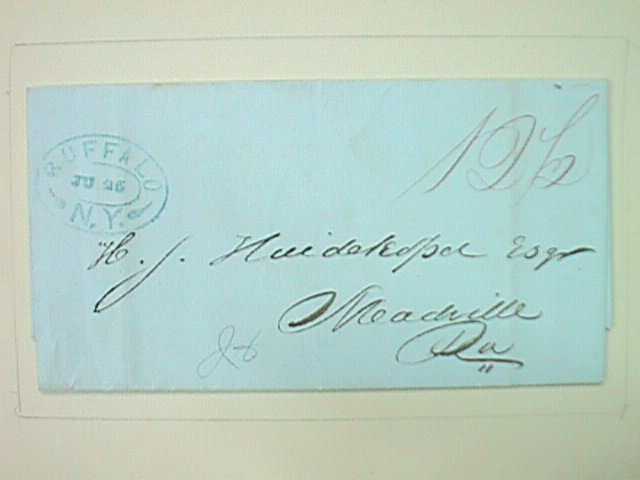 BUFFALO
JU 26
N.Y.
12½
H. J. Huidekoper Esqr
Meadville
Pa